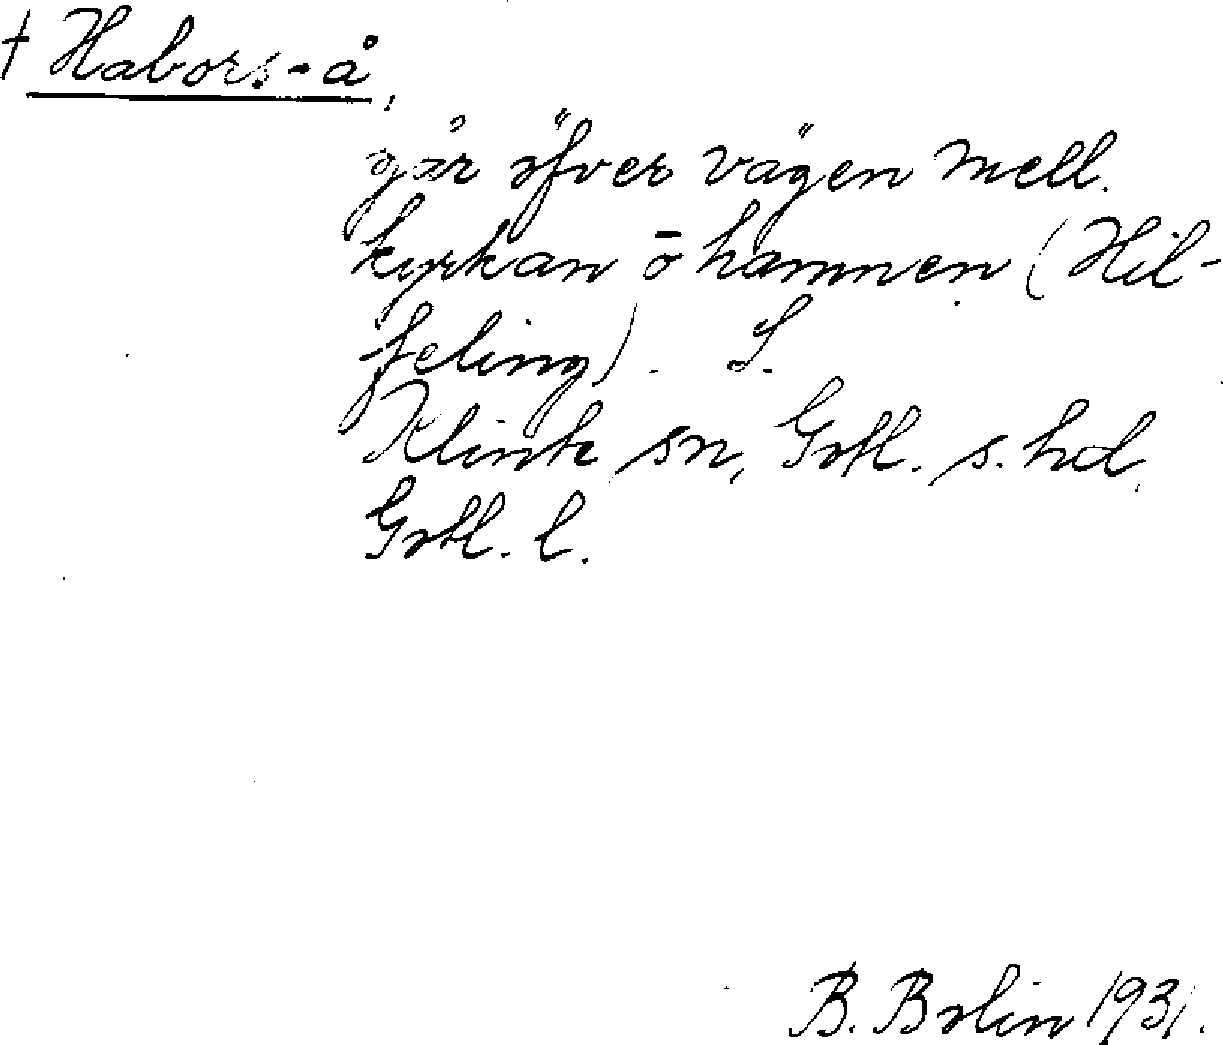 † Habors-å,
går öfver vägen mell.
kyrkan ō hamnen (Hil-
feling). S.
Klinte sn, Gotl. s. hd.
Gotl. l.
B. Bolin 1931.